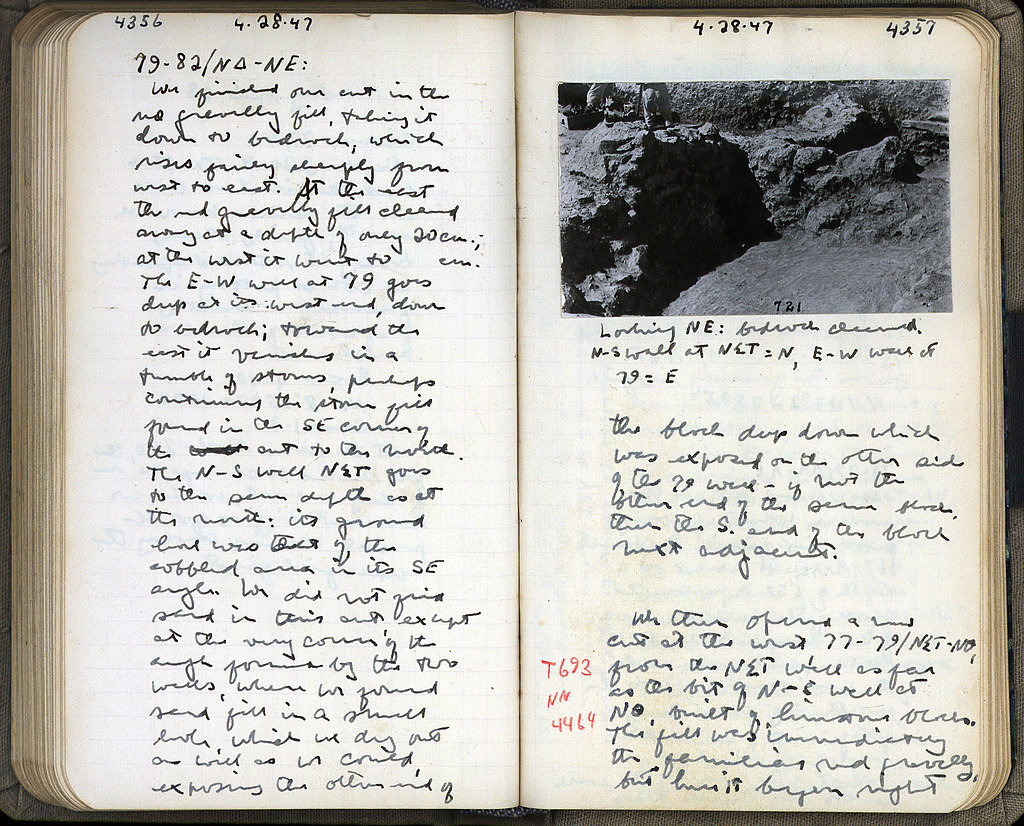 4356 4.28.47
79-82/NΔ-NE:
We finished our cut in the
red gravelly fill, taking it
down to bedrock, which
rises fairly sharply from
west to east. At the east
the red gravelly fill cleared
away at a depth of only 20 cm.;
at the west it went to cm.
The E-W wall at 79 goes
deep at its west end, down
to bedrock; toward the
east it vanishes in a
tumble of stones, perhaps
continuing the stone fill
found in the SE corner of
the cut to the north.
The N-S wall NΣT goes
to the same depth as at
the north: its ground
level was that of the
cobbled area in its SE
angle. We did not find
sand in this cut except
at the very corner of the
angle formed by the two
walls, where we found
sand fill in a small
hole, which we dug out
as well as we could,
exposing the other end of
4.28.47 4357
721
Looking NE: bedrock cleared.
N-S wall at NΣT = N, E-W wall at
79 = E
the block deep down which
was exposed on the other side
of the 79 wall - if not the
other end of the same block,
then the S. end of the block
next adjacent.
We then opened a new
cut at the west 77-79/NΣT-NΘ,
from the NΣT wall as far
as the bit of N-S wall at
NΘ, built of limestone blocks.
The fill was immediately
the familiar red gravelly,
but here it began right
T693
NN
4464